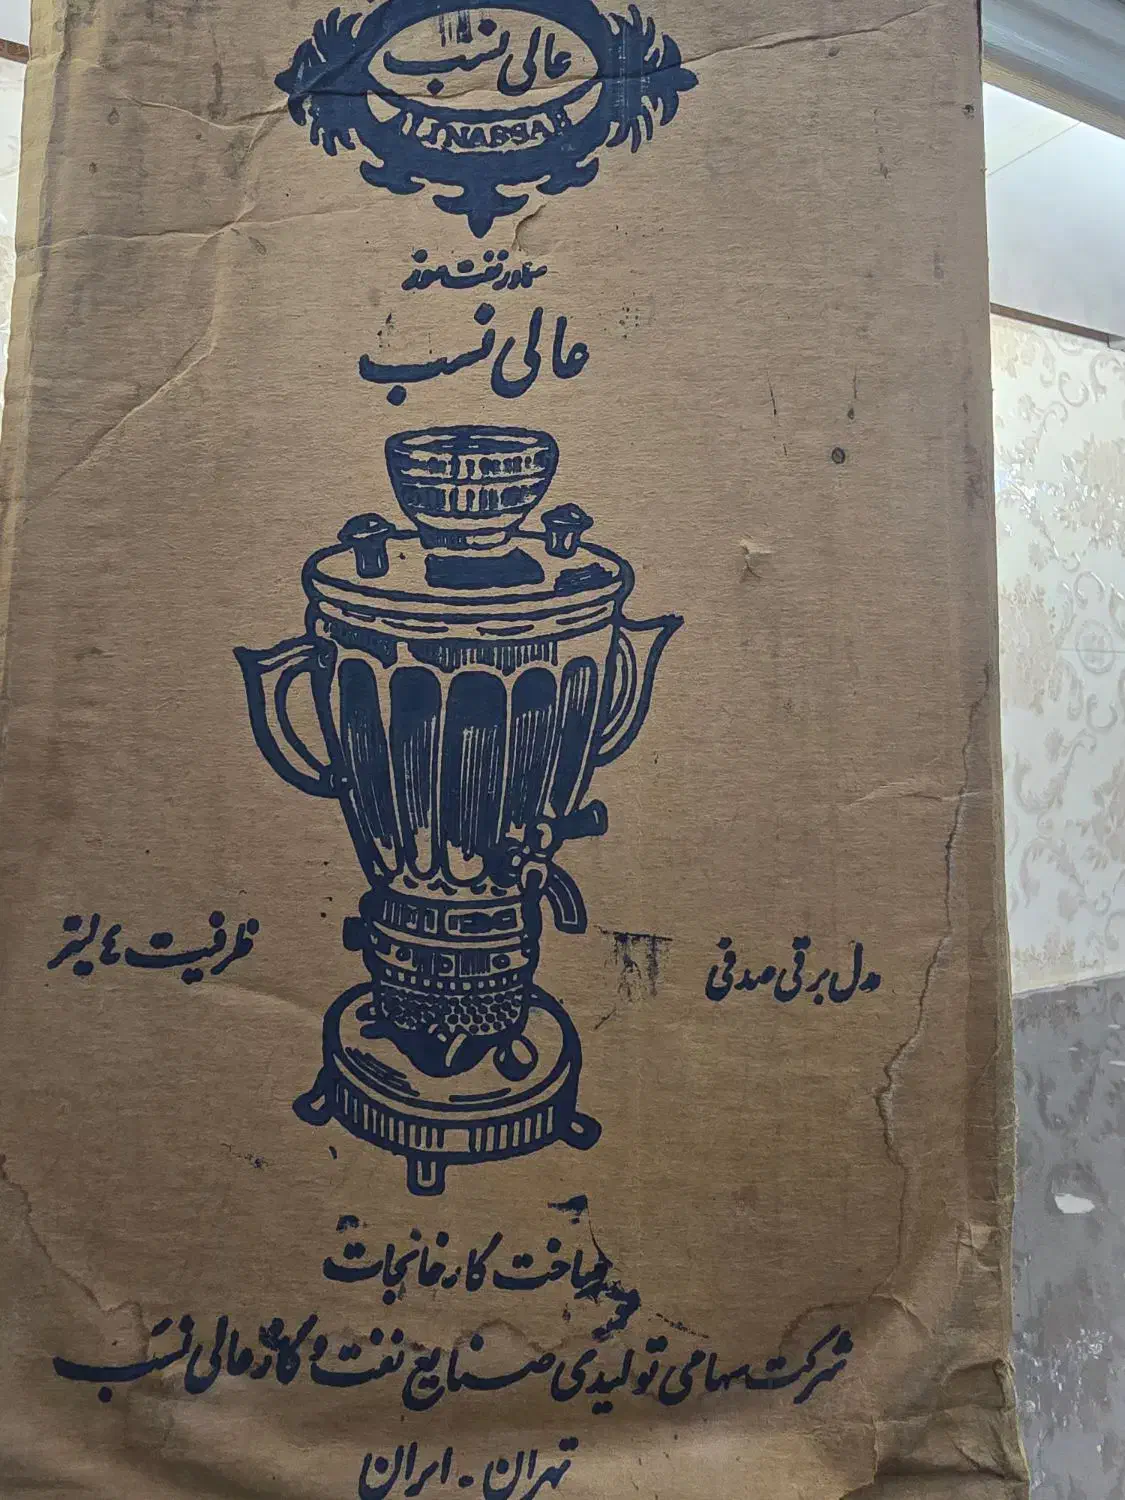 عالی نسب
ALINASSAB
سماور نفت سوز
عالی نسب
مدل برقی صدفی
ظرفیت ۴ لیتر
ساخت کارخانجات
شرکت سهامی تولیدی صنایع نفت و گاز عالی نسب
تهران - ایران